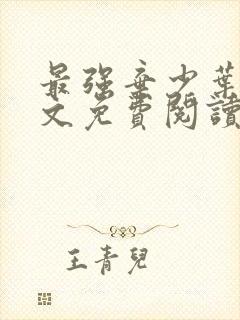 最强弃少葉
文免費閱讀
王青兒